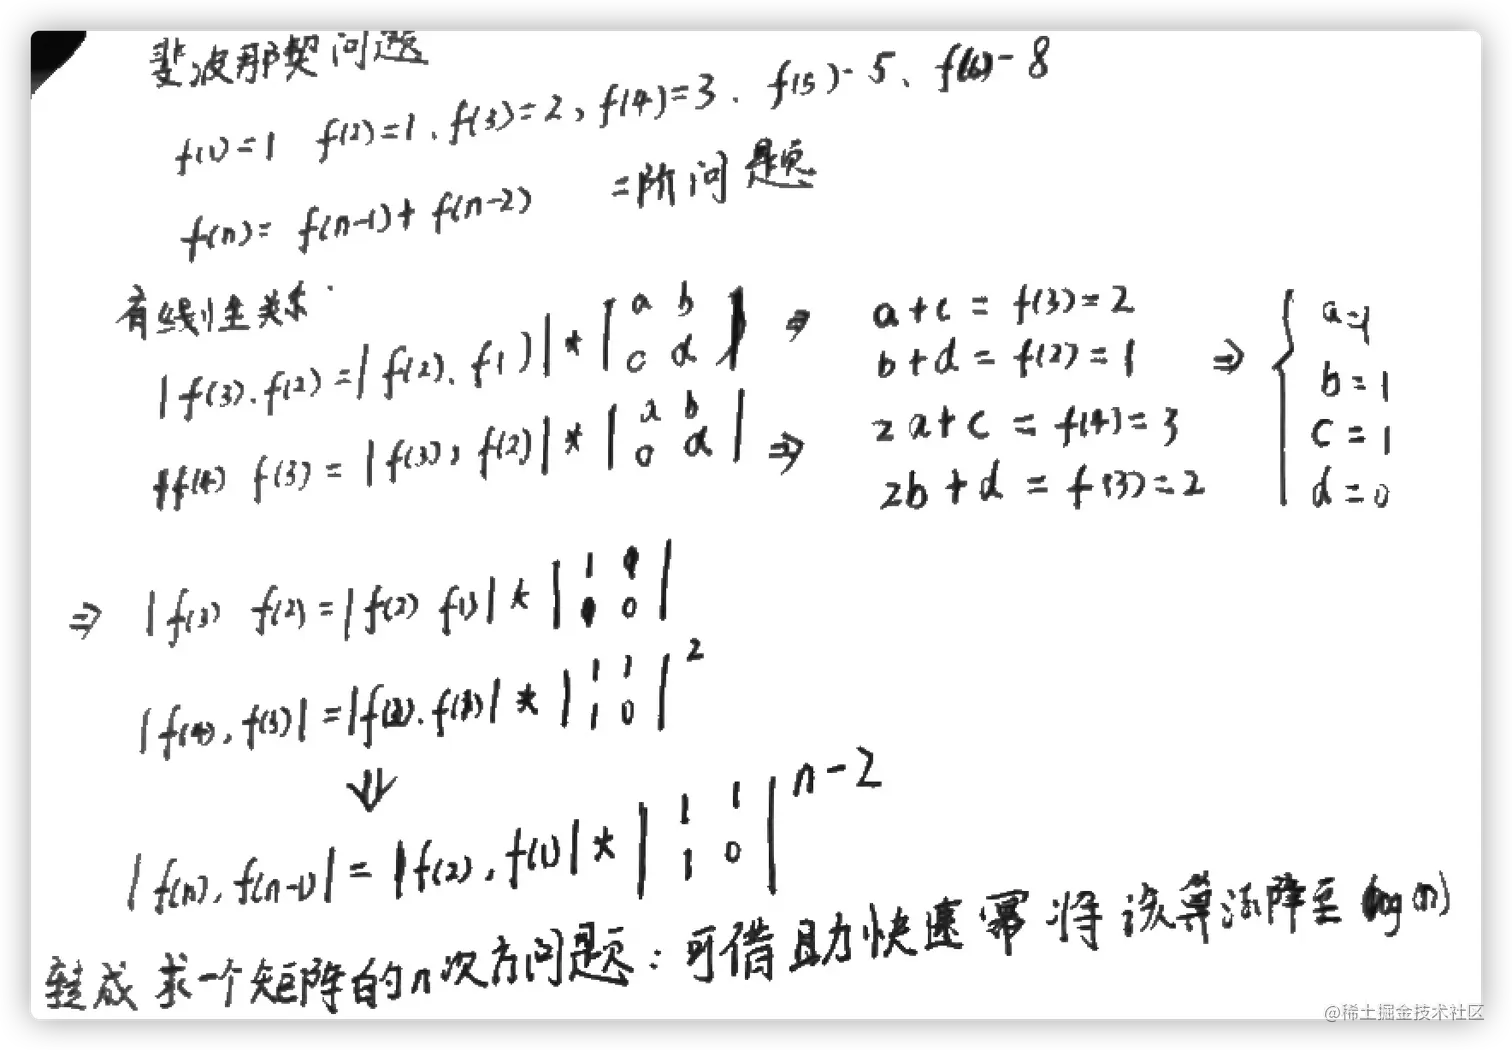 斐波那契问题
f(1)=1 f(2)=1、f(3)=2, f(4)=3、f(5)-5、f(6)-8
f(n)= f(n-1)+ f(n-2) =阶问题
有线性关系
|f(3).f(2) =|f(2)、f1)|* |a b c d| ⇒ a+c = f(3)=2
b+d = f(2)=1 ⇒ { a=1 b=1 c=1 d=0
f(4) f(3) = |f(3), f(2)|* |a b c d| ⇒ 2a+c = f(4)=3
2b+d = f(3)=2
⇒ |f(3) f(2) =|f(2) f(1)|* |1 1 1 0|
|f(4), f(3)| =|f(2).f(1)|* |1 1 1 0|²
⇓
|f(n), f(n-1)| = |f(2), f(1)|* |1 1 1 0| n-2
转成求一个矩阵的n次方问题：可借助快速幂将该算法降至log(n)
@稀土掘金技术社区